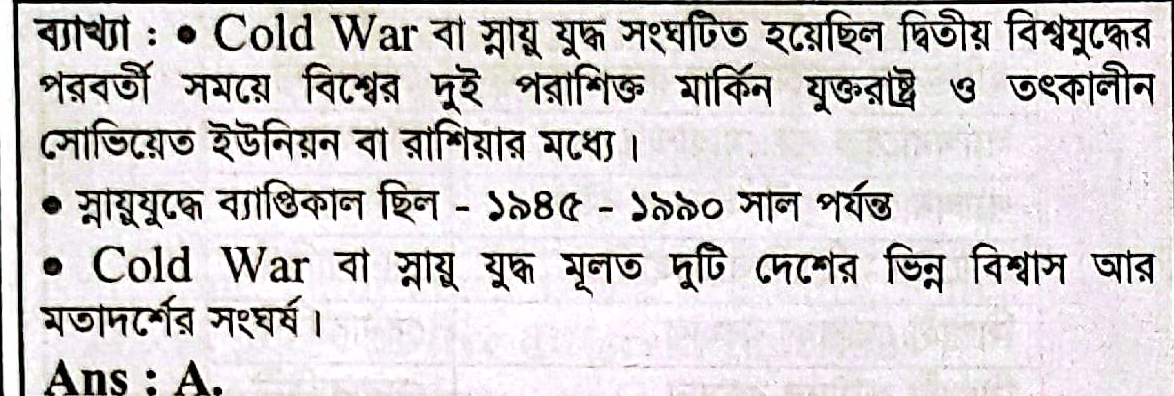 ব্যাখ্যা : ● Cold War বা স্নায়ু যুদ্ধ সংঘটিত হয়েছিল দ্বিতীয় বিশ্বযুদ্ধের
পরবর্তী সময়ে বিশ্বের দুই পরাশিক্ত মার্কিন যুক্তরাষ্ট্র ও তৎকালীন
সোভিয়েত ইউনিয়ন বা রাশিয়ার মধ্যে।
● স্নায়ুযুদ্ধে ব্যাপ্তিকাল ছিল - ১৯৪৫ - ১৯৯০ সাল পর্যন্ত
● Cold War বা স্নায়ু যুদ্ধ মূলত দুটি দেশের ভিন্ন বিশ্বাস আর
মতাদর্শের সংঘর্ষ।
Ans : A.